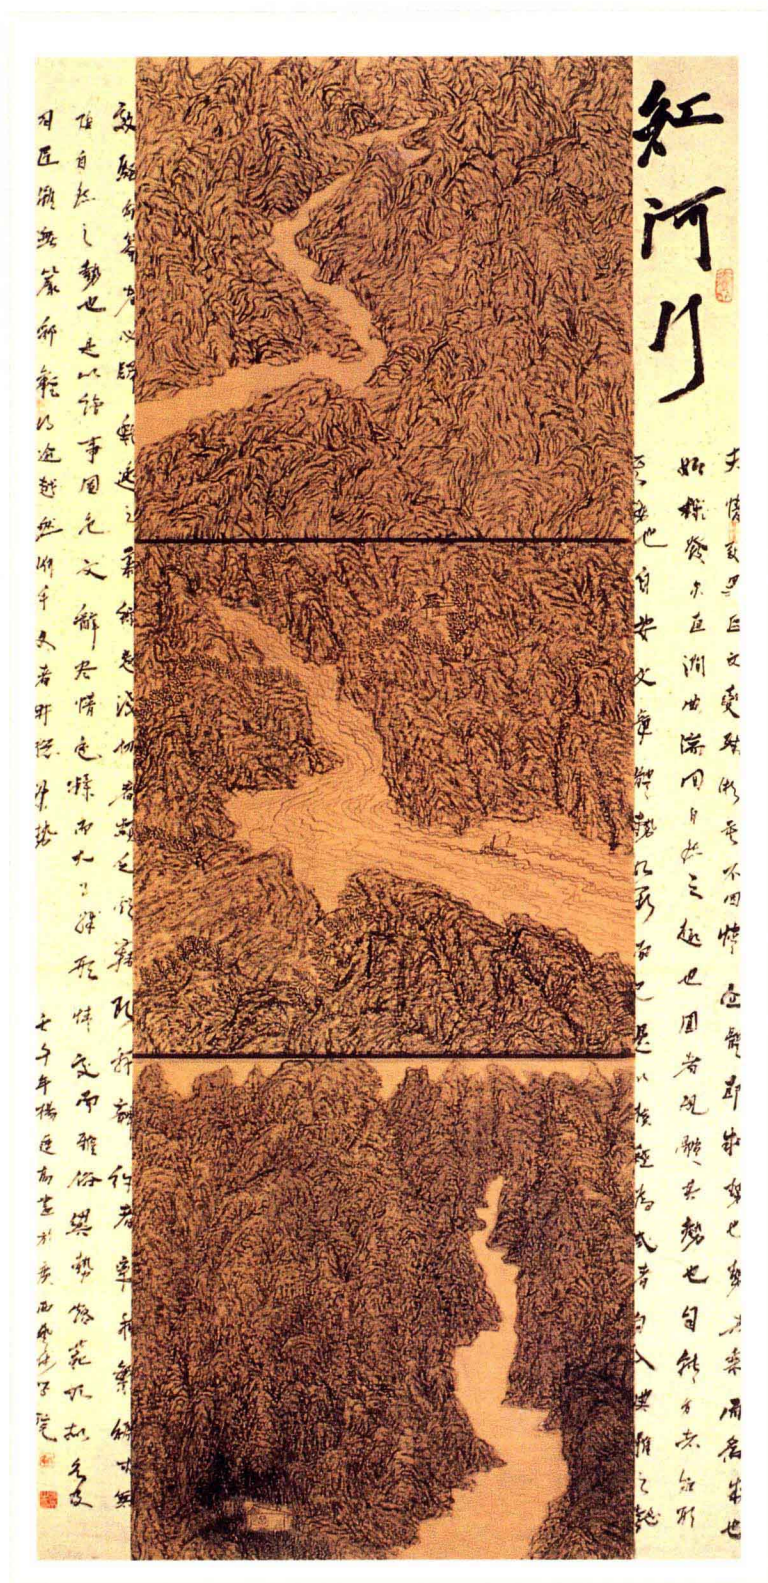 紅河行
夫情致異區文變殊術莫不因情立體即體成勢也勢者乘利而為制也
如機發矢直澗曲湍回自然之趣也圓者規體其勢也自轉方者矩形
其安也自安文章體勢如斯而已是以模經為式者自入典雅之懿
效騷命篇者必歸艷逸之華綜意淺切者類乏醞藉斷辭辨約者率乖繁縟水無
陰自然之勢也是以繪事圖色文辭盡情色糅而犬馬殊形情交而雅俗異勢鎔範所擬各有
司匠雖無嚴郛難得逾越然淵乎文者并總群勢
壬午年楊於廣西藝術學院